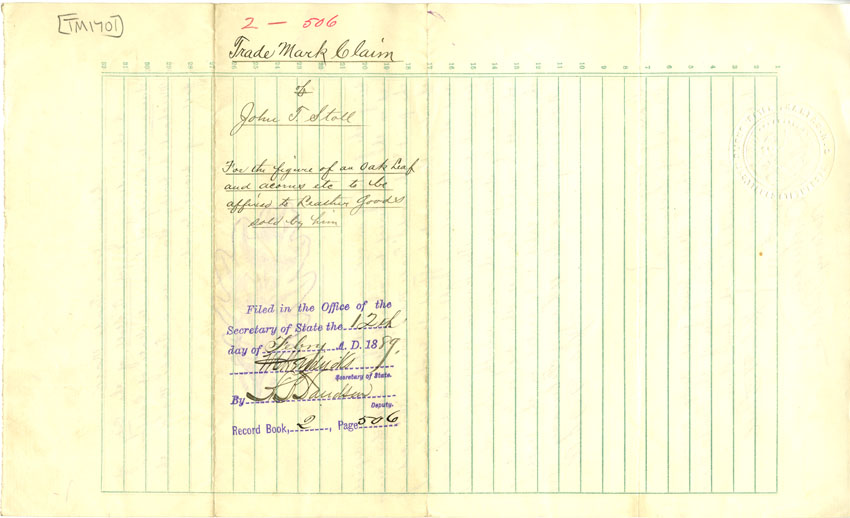 [TM1701]
2 — 506
Trade Mark Claim
of
John T. Stoll
For the figure of an Oak Leaf
and acorns etc to be
affixed to Leather Goods
sold by him
Filed in the Office of the
Secretary of State the 12th
day of Feby A. D. 1889.
Secretary of State.
By
Deputy.
Record Book, 2, Page 506